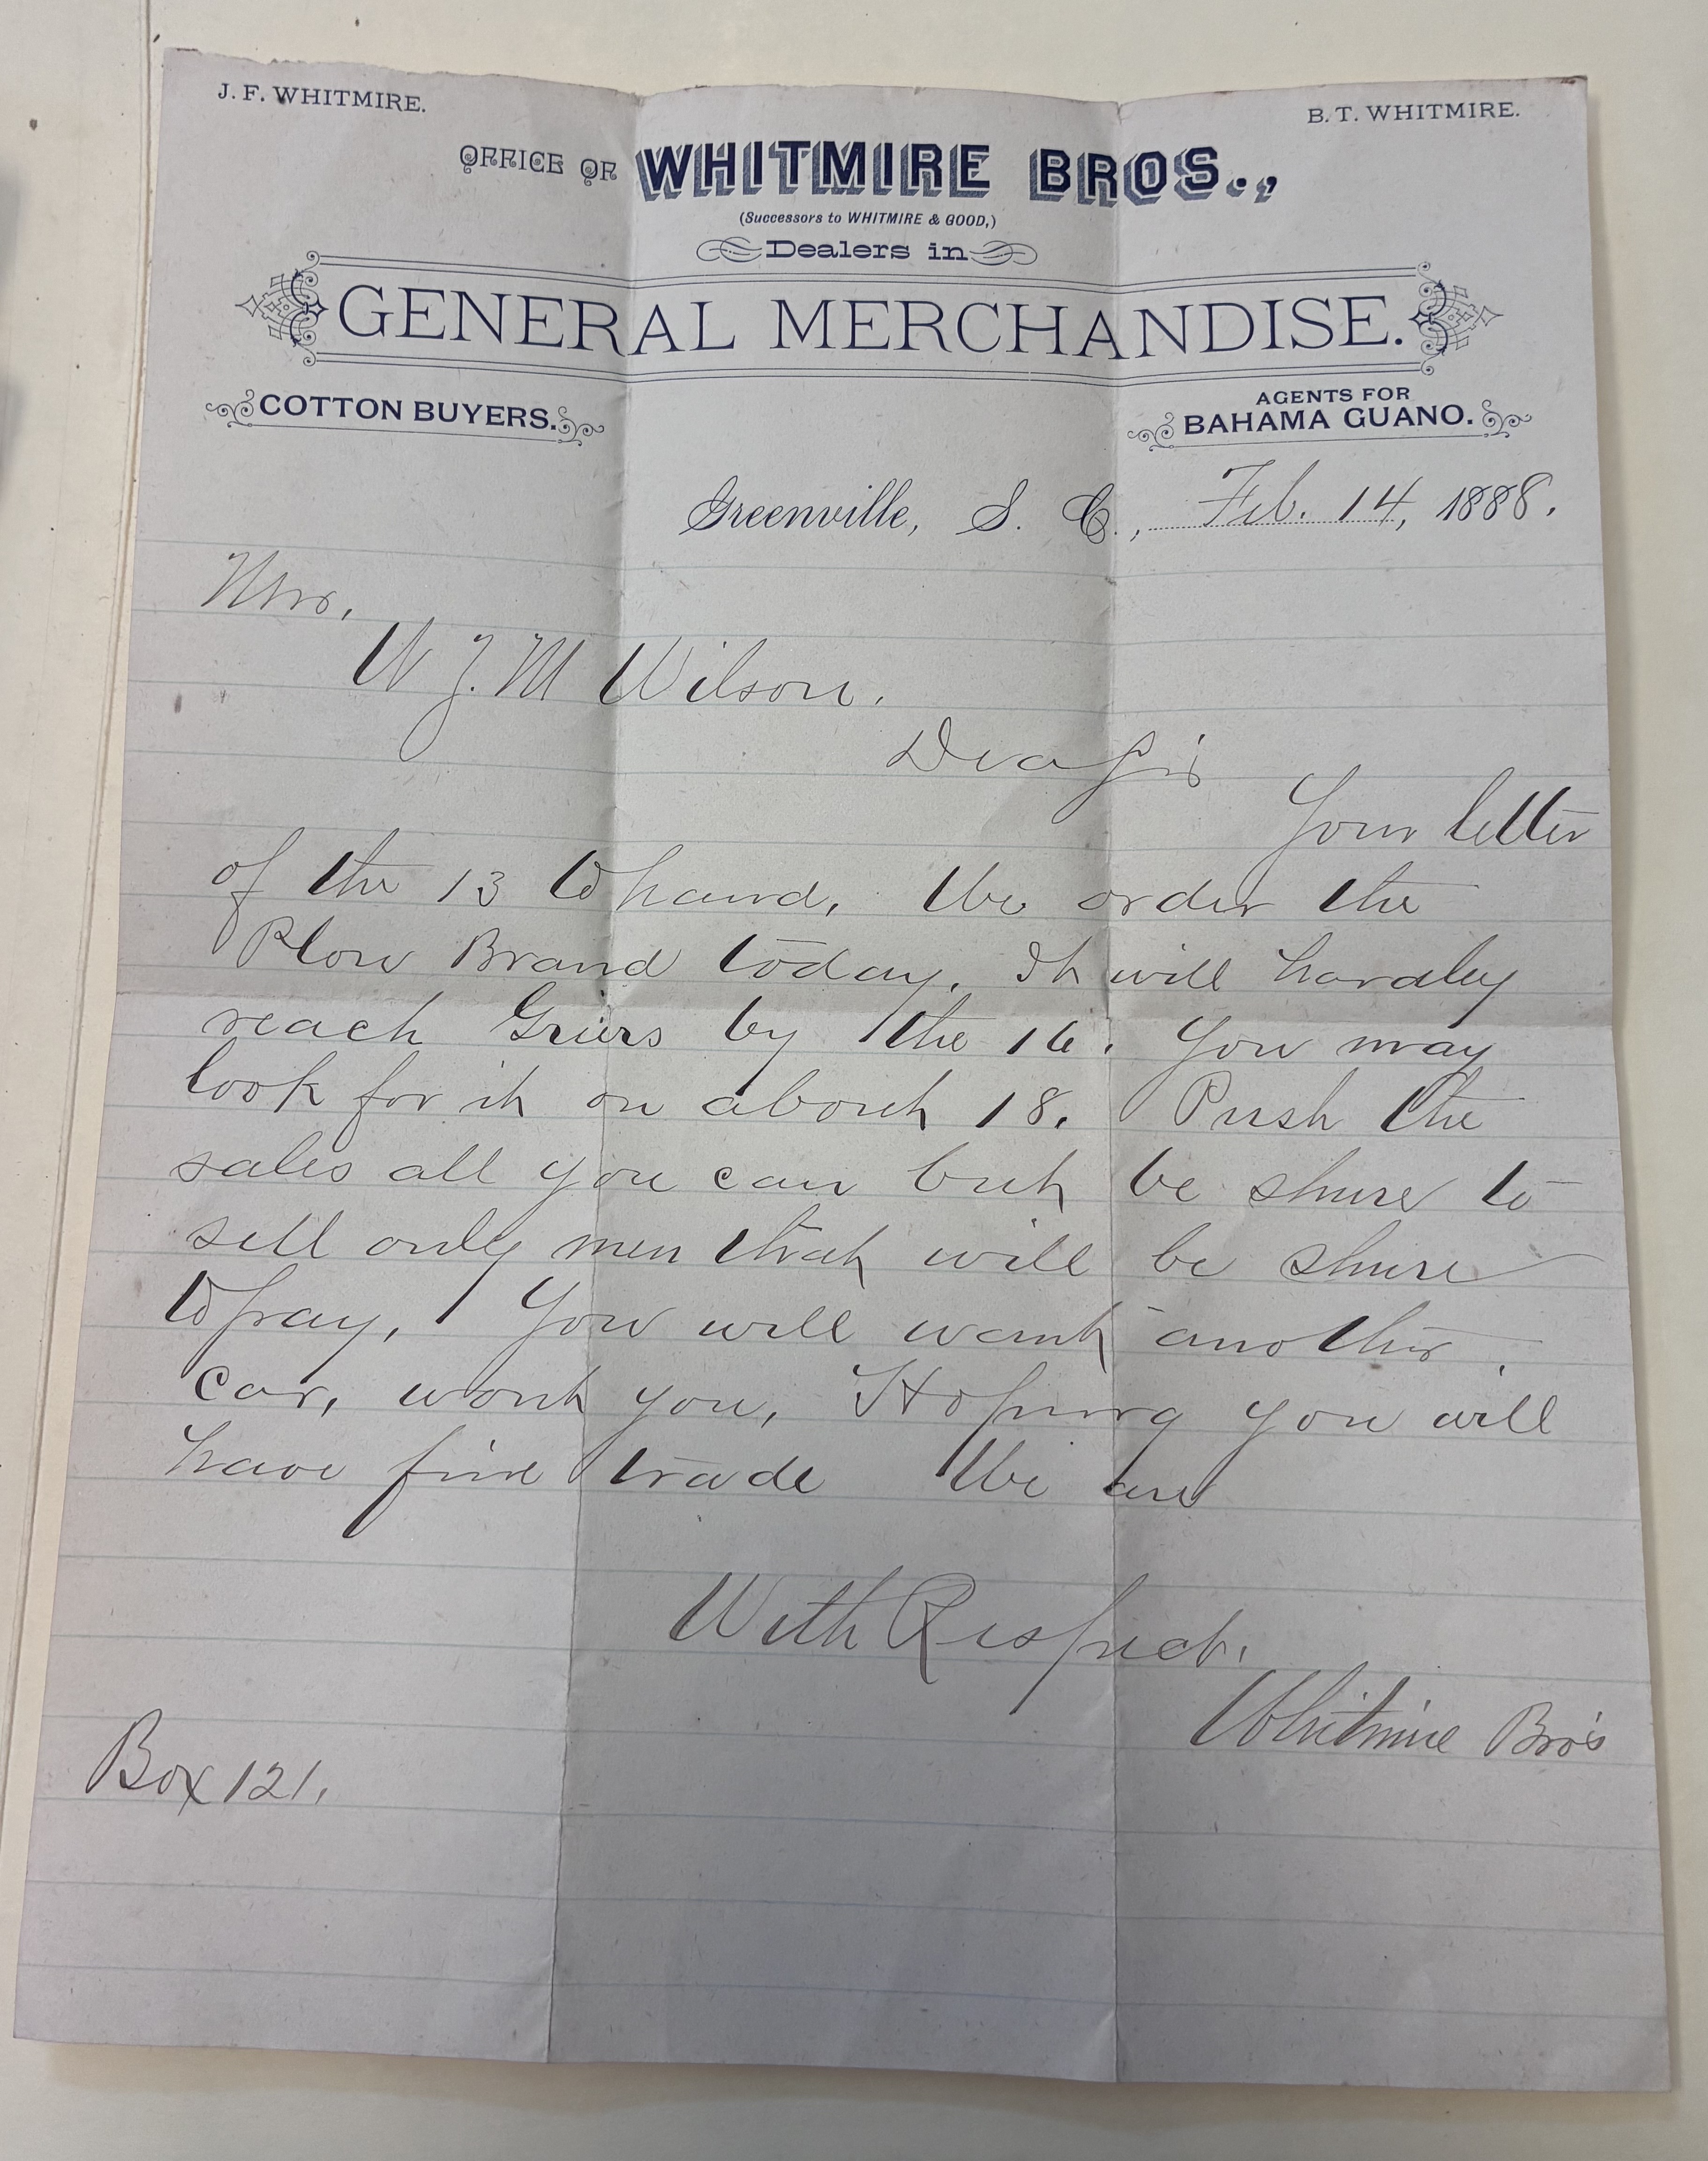 J. F. WHITMIRE.
B. T. WHITMIRE.
OFFICE OF WHITMIRE BROS.,
(Successors to WHITMIRE & GOOD,)
Dealers in
GENERAL MERCHANDISE.
COTTON BUYERS.
AGENTS FOR
BAHAMA GUANO.
Greenville, S. C., Feb. 14, 1888.
Mr.
W J. M Wilson.
Dea Sir
Your letter
of the 13 to hand. We order the
Plow Brand today. It will hardley
reach Griers by the 16. You may
look for it on about 18. Push the
sales all you can but be shure to
sell only men that will be shure
to pay, You will want another
car, wont you, Hoping you will
have fine trade We are
With Respect.
Whitmire Bro's
Box 121.